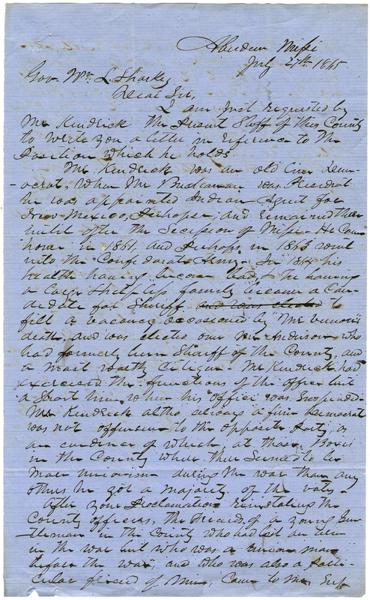 Aberdeen Missi
July 27th 1865
Gov Wm L Sharkey
Dear Sir,
I am just requested by
Mr Kendrick the present Shff of this County
to write you a letter in reference to the
position which he holds
Mr Kendrick was an old line Dem-
-ocrat. When Mr Buchanan was President
he was appointed Indian Agent for
New Mexico, perhaps, and remained there
until after the Secession of Missi. He came
home in 1861, and perhaps in 1863 went
into the Confederate Army. In 1864 his
health having become bad, & he having
a large helpless family became a Can-
didate for Sheriff and was elected to
fill a vacancy occasioned by
death, and was elected over Mr Anderson who
had formerly been Sheriff of the County and
a most worthy Citizen. Mr Kendrick had
exercised the functions of the office but
a short time when his office was suspended
Mr Kendrick altho always a firm Democrat
was not offensive to the opposite party, as
an evidence of which, at those Boxes
in the County where there seemed to be
more unionism during the war than any
others he got a majority of the votes.
After your Proclamation reinstating the
County officers, the friends of a young Gen-
tleman in the County who had lost an arm
in the war but who was a union man
before the war and who was also a parti-
cular friend of mine, came to me